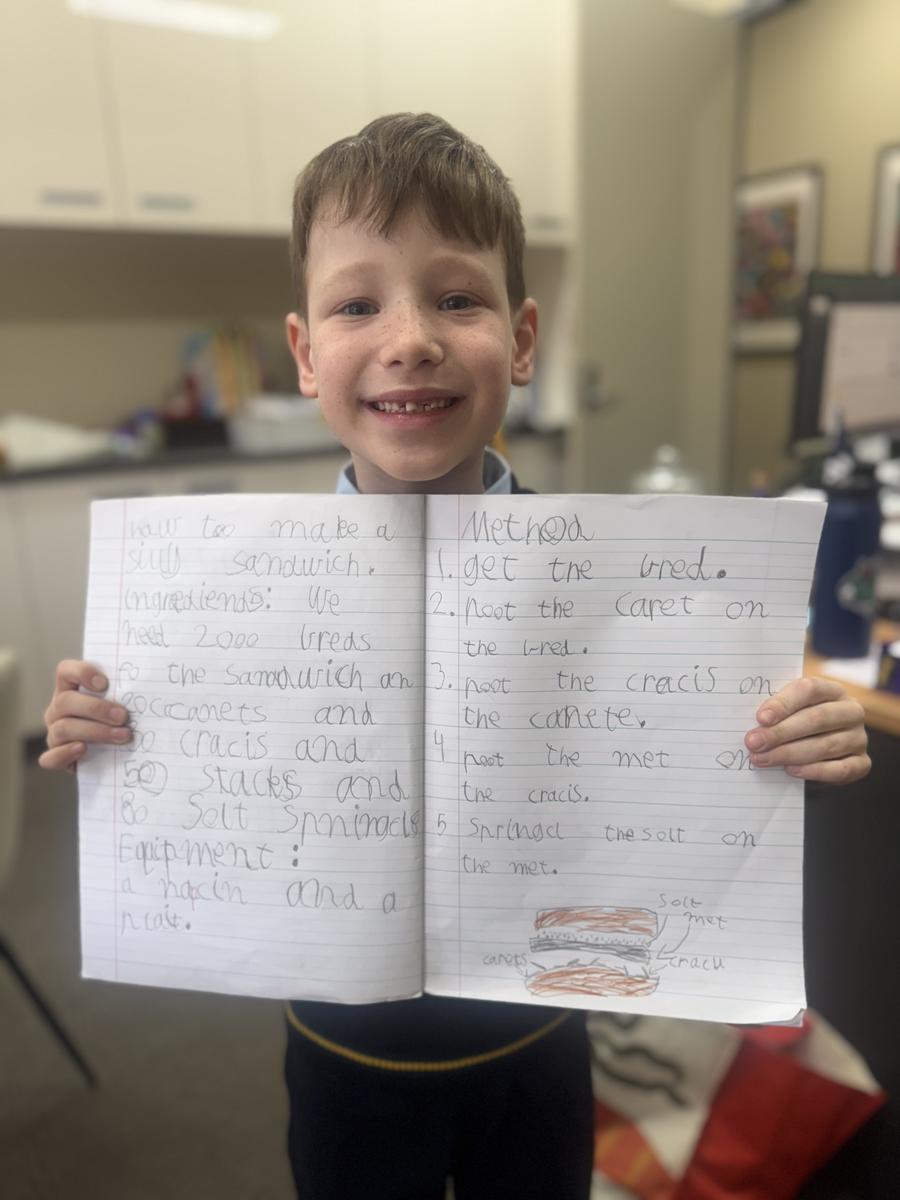 how too make a
silly sandwich.
Ingrediends: We
need 2000 breds
fo the Sandwich an
canets and
50 cracis and
50 stacks and
80 Solt Spningcls
Equipment:
a napcin and a
Method
1. get the bred.
2. poot the caret on
the bred.
3. poot the cracis on
the canete.
4 poot the met on
the cracis.
5 Springcl the solt on
the met.
Solt
met
carets